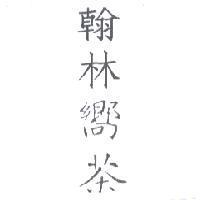 翰林嚮茶